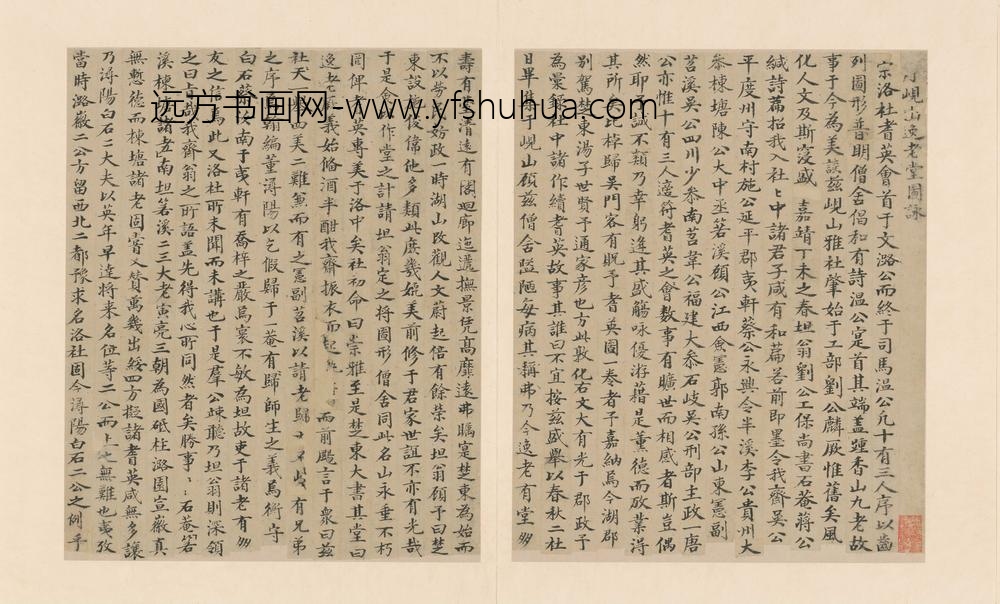 小峴山逸老堂圖詠
宋洛社耆英會首于文潞公而終于司馬温公凡十有三人序以齒
列圖形普明僧舍倡和有詩温公寔首其端盖踵香山九老故
事于今為美談兹峴山雅社肇始于工部劉公麟厥惟舊矣風
化人文及斯寖盛 嘉靖丁未之春坦翁劉公工保尚書石菴蔣公
緘詩萹招我入社社中諸君子咸有和萹若前即墨令我齋吴公
平度州守南村施公延平郡夷軒蔡公永興令半溪李公貴州大
叅棟塘陳公大中丞箬溪顧公江西僉憲郭南孫公山東憲副
苕溪吴公四川少叅南苕韋公福建大叅石岐吴公刑部主政一唐
公亦惟十有三邊符耆英之會數事有曠世而相感者斯豈偶
然耶 誠不纇乃幸躬逢其盛觴咏優游藉是薫德而敚業淂
其所 比棹歸吴門客有貺予耆英圖卷者予嘉納焉今湖郡
别駕楚東湯子世賢予通家彦也方此敦化右文大有光于郡政予
為彚籍社中諸作績耆英故事其誰曰不宜按兹盛舉以春秋二社
日畢集于峴山碩兹僧舍隘陋每病其稱弗乃今逸老有堂
壽有 清遠有閣廻廊迤邐撫景凭高靡遠弗矚寔楚東為始而
不以勞 妨政一時湖山改觀人文蔚起倍有餘榮矣坦翁顧予曰楚
東設 俊偉他多類此庶幾媲美前修于君家世誼不亦有光哉
于是僉 作堂之計請坦翁定之将圖形僧舍同此名山永垂不朽
罔俾 英專美于洛中矣社初命曰崇雅至是楚東大書其堂曰
逸老 義義始脩酒半酣我齋振衣而起 而前颺言于衆曰兹
社天 西美二難兼而有之憲副苕溪以請老歸 有兄弟
之序 翰編董潯陽以乞假歸于一菴有歸師生之義焉衛守
白石蔡 南于夷軒有喬梓之嚴焉寰不敏為坦故吏于諸老有
友之 為此又洛社所未聞而未講也于是羣公竦聽乃坦翁則深領
之曰 我齋翁之所語盖先得我心所同然者矣勝事勝事石菴箬
溪棟塘諸老南坦箬溪三大老寅亮三朝為國砥柱潞園宣徽真
無慙德而棟塘諸老固嘗入贊萬幾出綏四方擬諸耆英咸無多讓
乃潯陽白石二大夫以英年早達将来名位等二公而上之無難也夷攷
當時潞徽二公方留西北二都豫求名洛社固今潯陽白石二公之例乎
远方书画网-www.yfshuhua.com